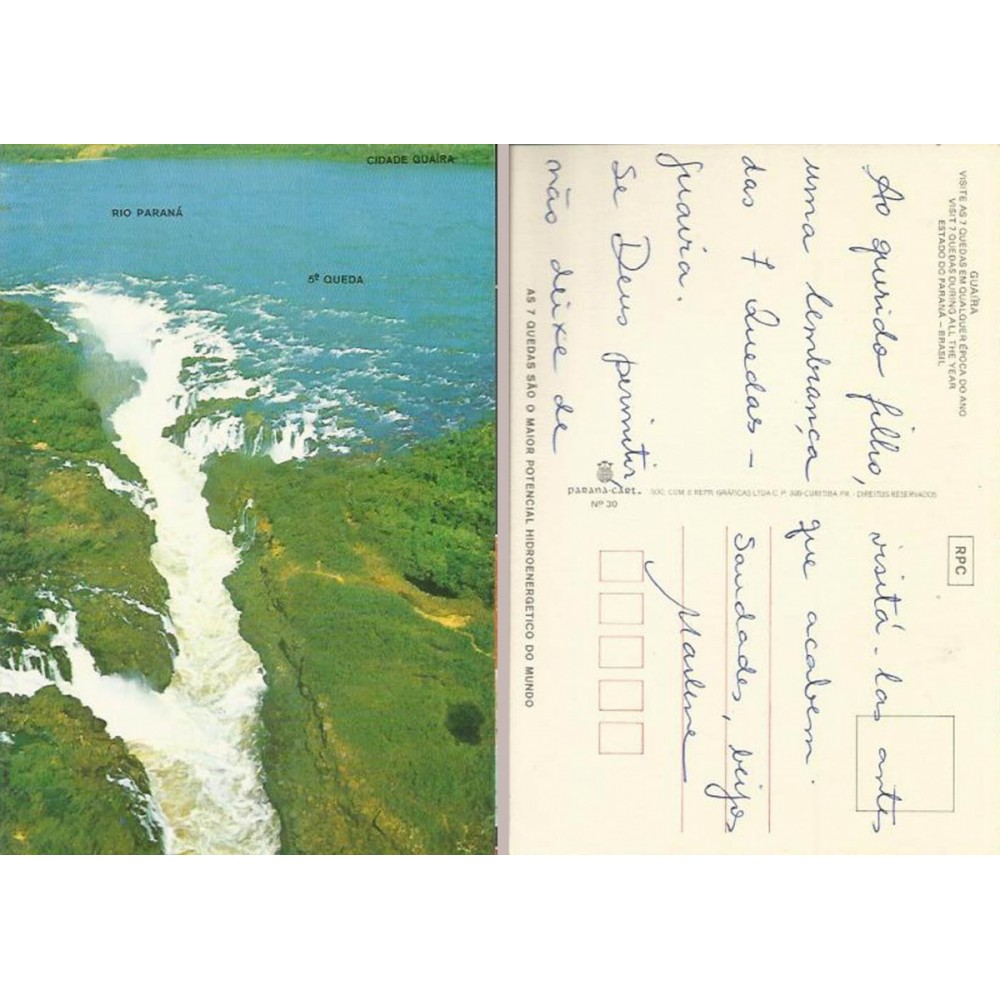 CIDADE GUAÍRA
RIO PARANÁ
5ª QUEDA
GUAÍRA
VISITE AS 7 QUEDAS EM QUALQUER ÉPOCA DO ANO
VISIT 7 QUEDAS DURING ALL THE YEAR
ESTADO DO PARANÁ – BRASIL
Ao querido filho,
uma lembrança
das 7 Quedas –
Guaira.
Se Deus permitir,
não deixe de
visitá-las antes
que acabem.
Saudades, beijos
Marlene
RPC
PARANÁ-CART. SOC. COM. E REPR. GRÁFICAS LTDA C. P. 335-CURITIBA PR. - DIREITOS RESERVADOS
Nº 30
AS 7 QUEDAS SÃO O MAIOR POTENCIAL HIDROENERGETICO DO MUNDO